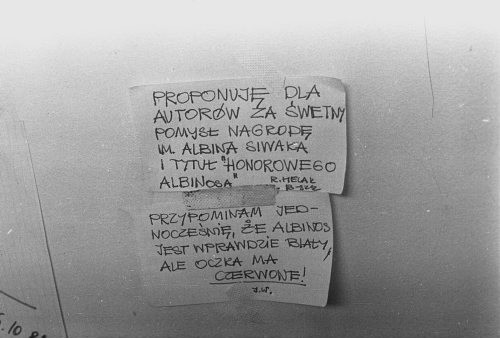 PROPONUJĘ DLA
AUTORÓW ZA ŚWETNY
POMYSŁ NAGRODĘ
IM. ALBINA SIWAKA
I TYTUŁ "HONOROWEGO
ALBINOSA"
PRZYPOMINAM JED-
NOCZEŚNIE, ŻE ALBINOS
JEST WPRAWDZIE BIAŁY,
ALE OCZKA MA
CZERWONE!
J.W.